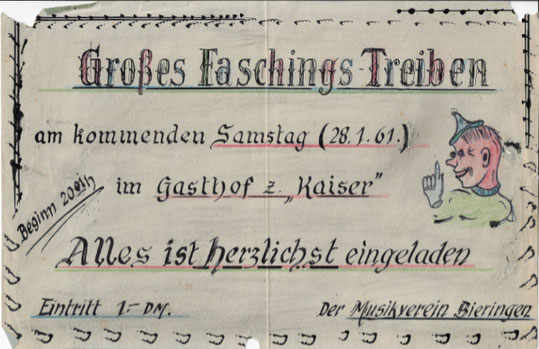 Großes Faschings-Treiben
am kommenden Samstag (28.1.61.)
im Gasthof z. „Kaiser"
Beginn 20 Uh
Alles ist herzlichst eingeladen
Eintritt 1.- DM.
Der Musikverein Bieringen